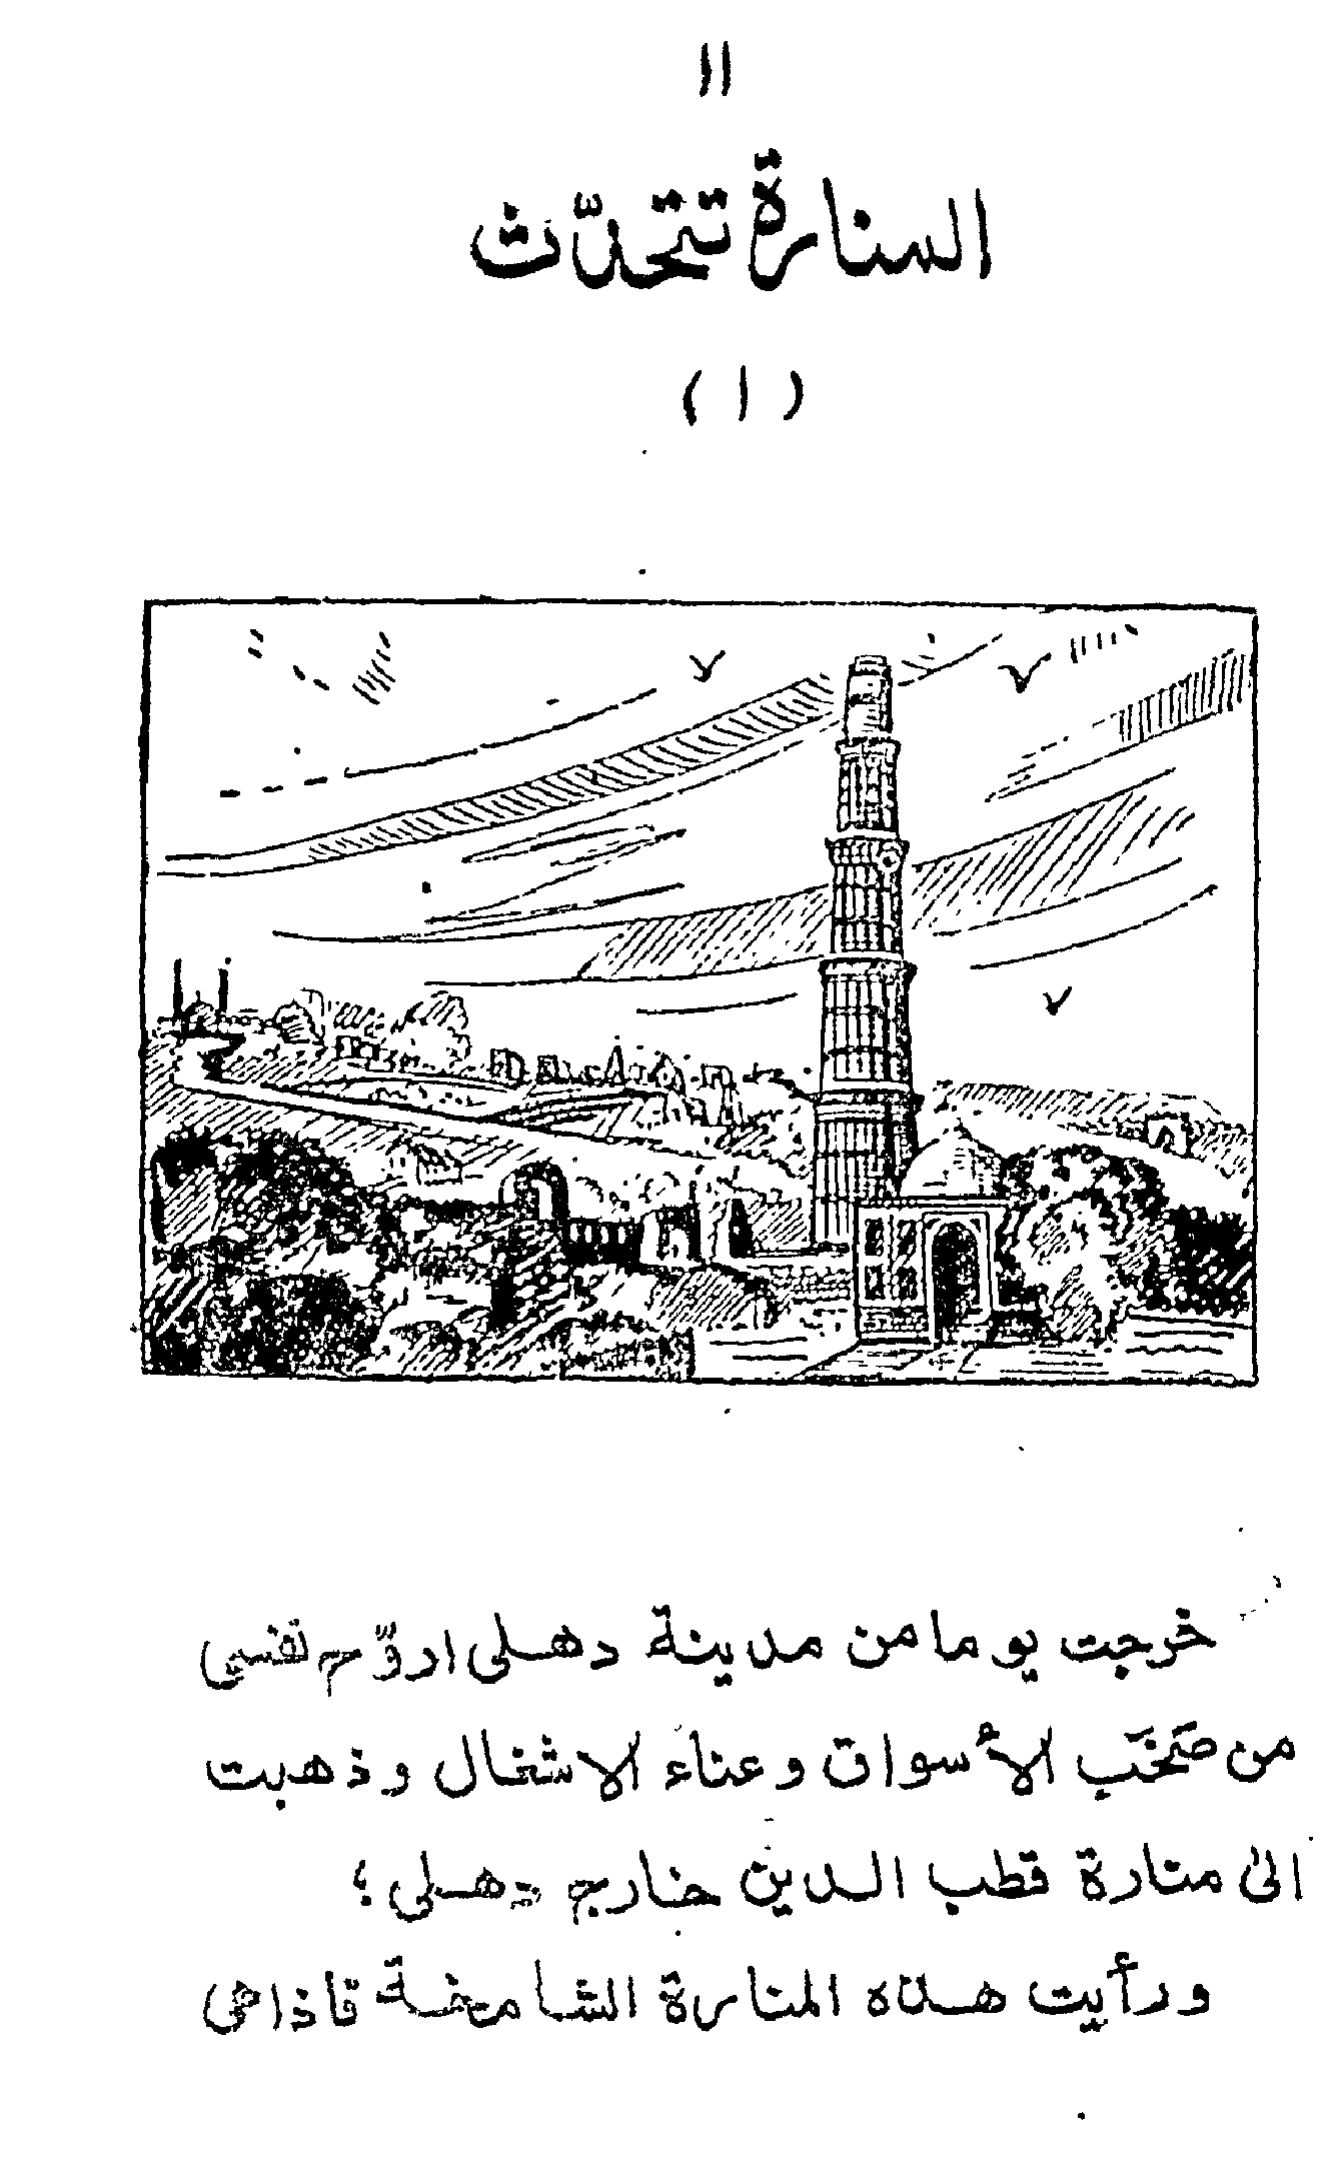 ١١
المنارة تتحدّث
( ١ )
خرجت يوما من مدينة دهلى اروّح نفسى
من صَخَب الأسواق وعناء الاشغال وذهبت
الى منارة قطب الدين خارج دهلى؛
ورأيت هذه المنارة الشامخة فاذا هى